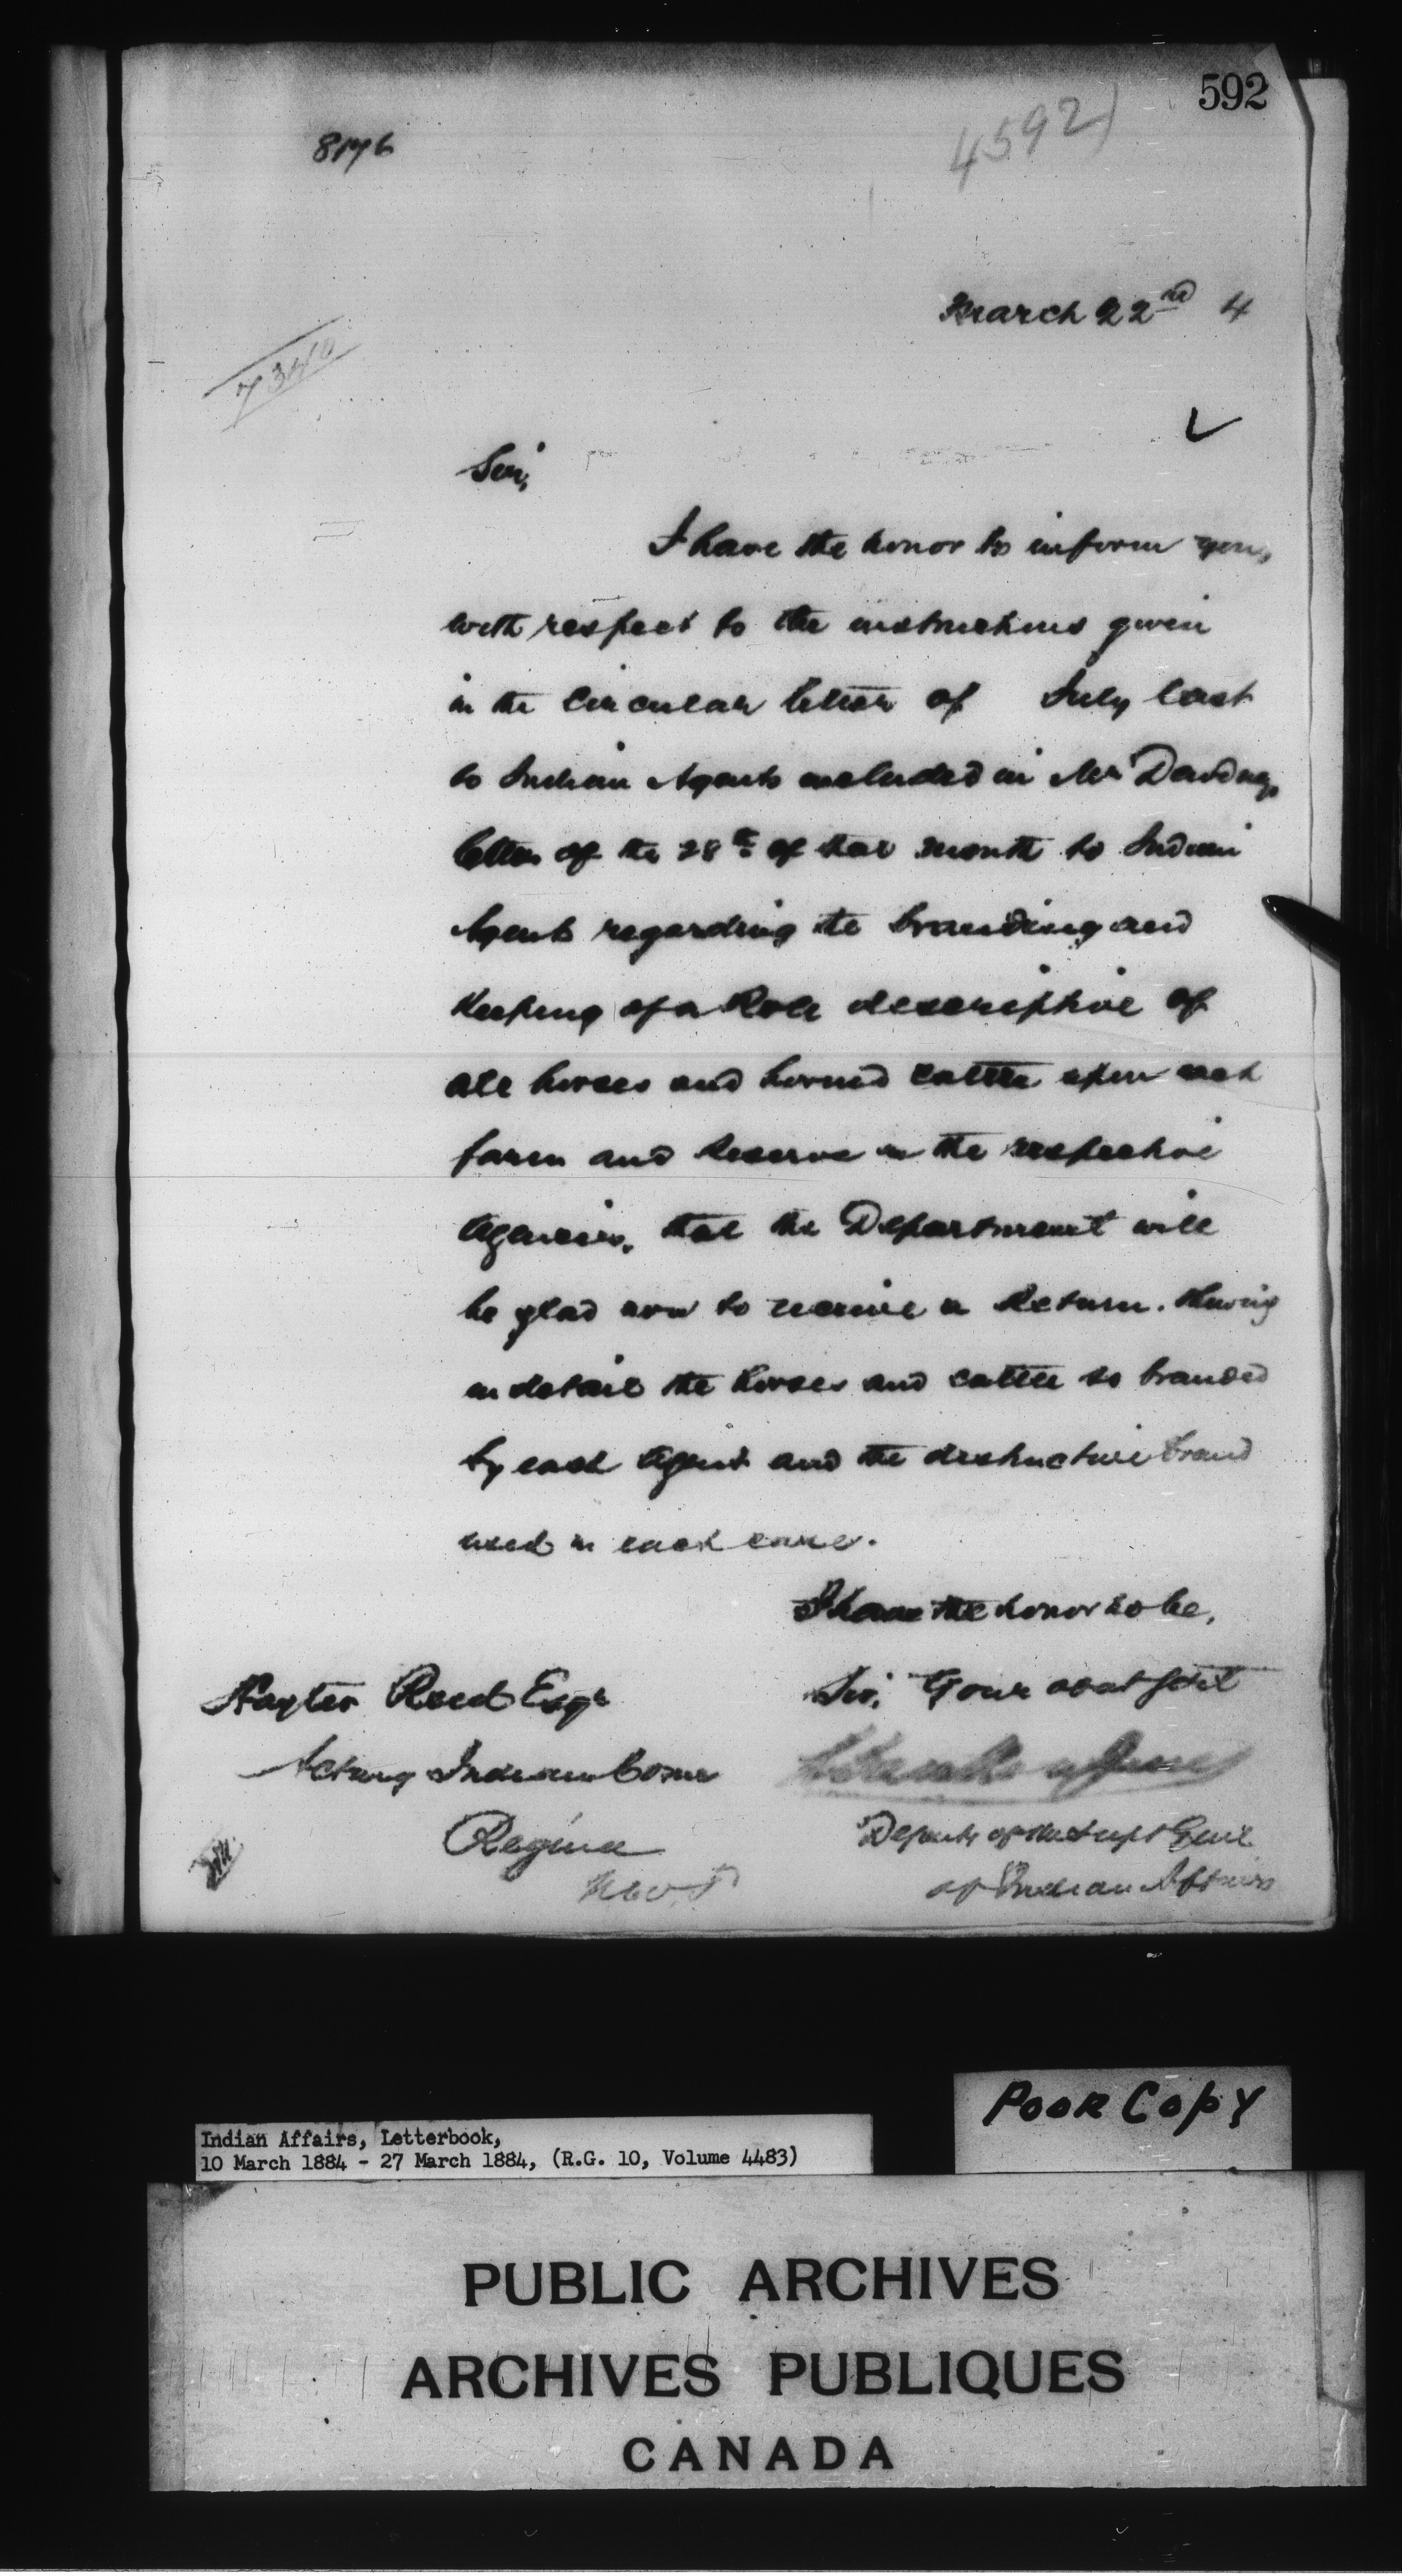 592
4592)
8176
March 22nd 4
7340
Sir,
I have the honor to inform you,
with respect to the instructions given
in the Circular letter of July last
to Indian Agents included in Mr Dewdney's
letter of the 28th of that month to Indian
Agents regarding the branding and
keeping of a Roll descriptive of
all horses and horned cattle upon each
farm and Reserve in the respective
Agencies, that the Department will
be glad now to receive a Return shewing
in detail the horses and cattle so branded
by each Agent and the distinctive brand
used in each case.
I have the honor to be,
Sir, Your obdt Servt
Hayter Reed Esqr
Acting Indian Comr
Regina
N.W.T
Deputy of the Supt Genl
of Indian Affairs
Poor Copy
Indian Affairs, Letterbook,
10 March 1884 - 27 March 1884, (R.G. 10, Volume 4483)
PUBLIC ARCHIVES
ARCHIVES PUBLIQUES
CANADA